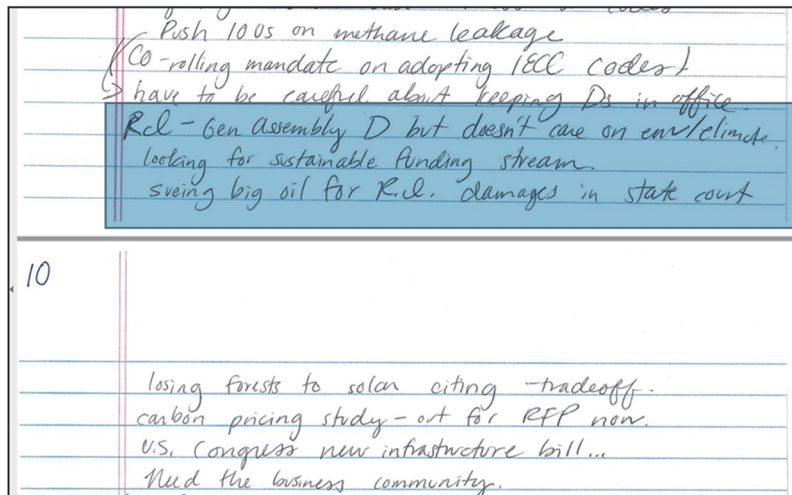 Push IOUs on methane leakage
CO-rolling mandate on adopting IECC codes
→ have to be careful about keeping Ds in office.
R.I - Gen Assembly D but doesn't care on env/climate.
looking for sustainable funding stream.
sueing big oil for R.I. damages in state court
10
losing forests to solar citing -tradeoff.
carbon pricing study - out for RFP now.
U.S. Congress new infrastructure bill...
Need the business community.